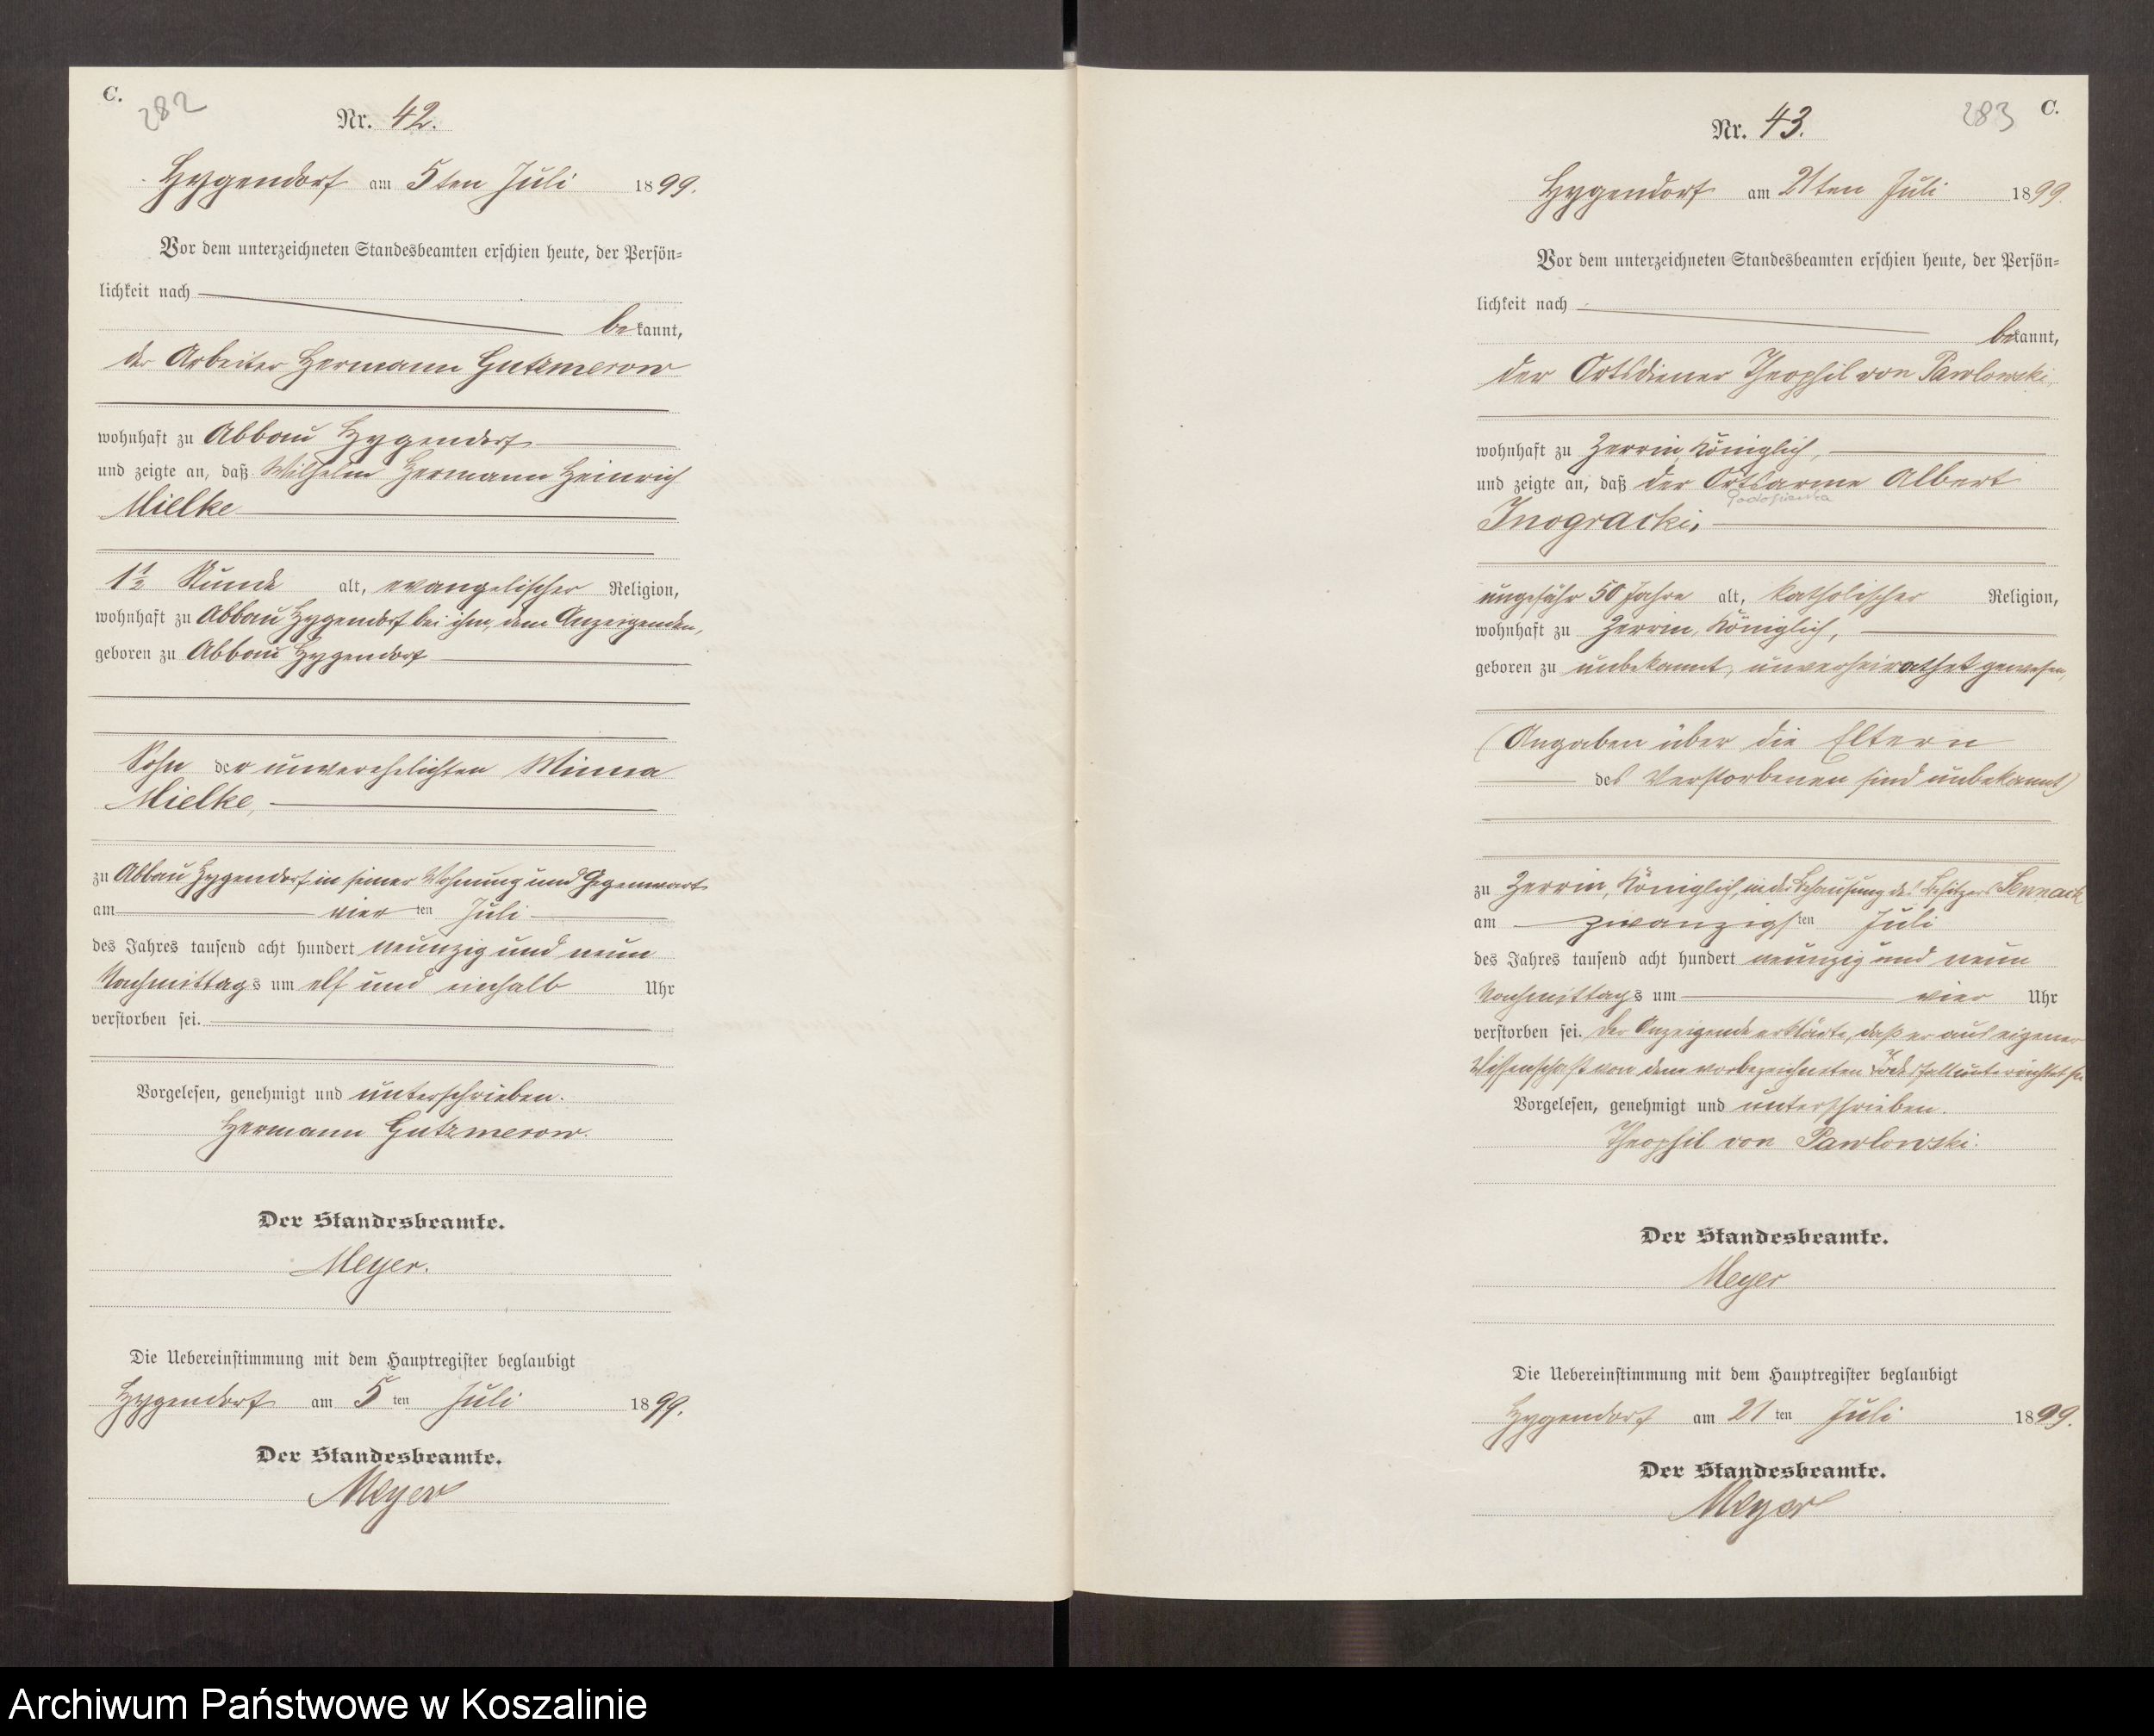 C.
282
Nr. 42.
Hygendorf am 5ten Juli 1899.
Vor dem unterzeichneten Standesbeamten erschien heute, der Persön-
lichkeit nach
bekannt,
der Arbeiter Hermann Gutzmerow
wohnhaft zu Abbau Hygendorf
und zeigte an, daß Wilhelm Hermann Heinrich
Mielke
1 1/2 Stunde alt, evangelischer Religion,
wohnhaft zu Abbau Hygendorf bei ihm, dem Anzeigenden,
geboren zu Abbau Hygendorf
Sohn der unverehelichten Minna
Mielke,
zu Abbau Hygendorf in seiner Wohnung und Gegenwart
am vier ten Juli
des Jahres tausend acht hundert neunzig und neun
Nachmittags um elf und einhalb Uhr
verstorben sei.
Vorgelesen, genehmigt und unterschrieben.
Hermann Gutzmerow.
Der Standesbeamte.
Meyer.
Die Uebereinstimmung mit dem Hauptregister beglaubigt
Hygendorf am 5 ten Juli 1899.
Der Standesbeamte.
Meyer
283 C.
Nr. 43.
Hygendorf am 21ten Juli 1899.
Vor dem unterzeichneten Standesbeamten erschien heute, der Persön-
lichkeit nach
bekannt,
der Ortsdiener Theophil von Pawlowski,
wohnhaft zu Zerrin, Königlich,
und zeigte an, daß der Ortsarme Albert
Inogracki,
ungefähr 50 Jahre alt, katholischer Religion,
wohnhaft zu Zerrin, Königlich,
geboren zu unbekannt, unverheirathet gewesen,
(Angaben über die Eltern
des Verstorbenen sind unbekannt)
zu Zerrin, Königlich, in der Behausung des Besitzers
am zwanzigsten Juli
des Jahres tausend acht hundert neunzig und neun
Nachmittags um vier Uhr
verstorben sei. Der Anzeigende erklärte, daß er aus eigener
Wissenschaft von dem vorbezeichneten Todesfall unterrichtet sei
Vorgelesen, genehmigt und unterschrieben.
Theophil von Pawlowski.
Der Standesbeamte.
Meyer
Die Uebereinstimmung mit dem Hauptregister beglaubigt
Hygendorf am 21 ten Juli 1899.
Der Standesbeamte.
Meyer
Archiwum Państwowe w Koszalinie